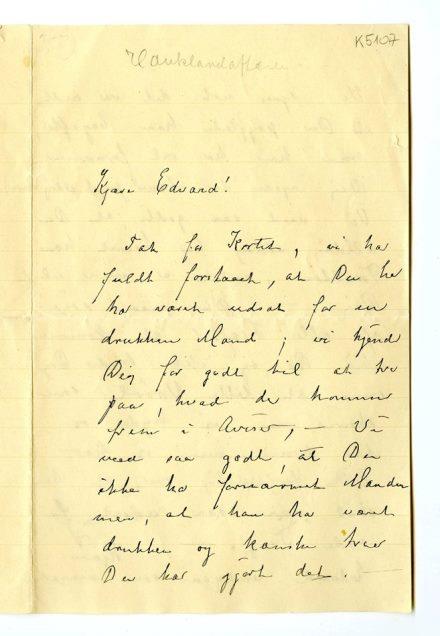 K5107
Hauklandaffæren
Kjære Edvard!
Tak for Kortet, vi ha
fuldt forstaaet, at Du her
ha været udsat for en
drukken Mand; vi kjend
Dig for godt til at tro
paa, hvad der kommer
frem i Aviser, — Vi
veed saa godt, at Du
ikke ha fornærmet Manden
men, at han ha været
drukken og kanske troer
Du har gjort det. —